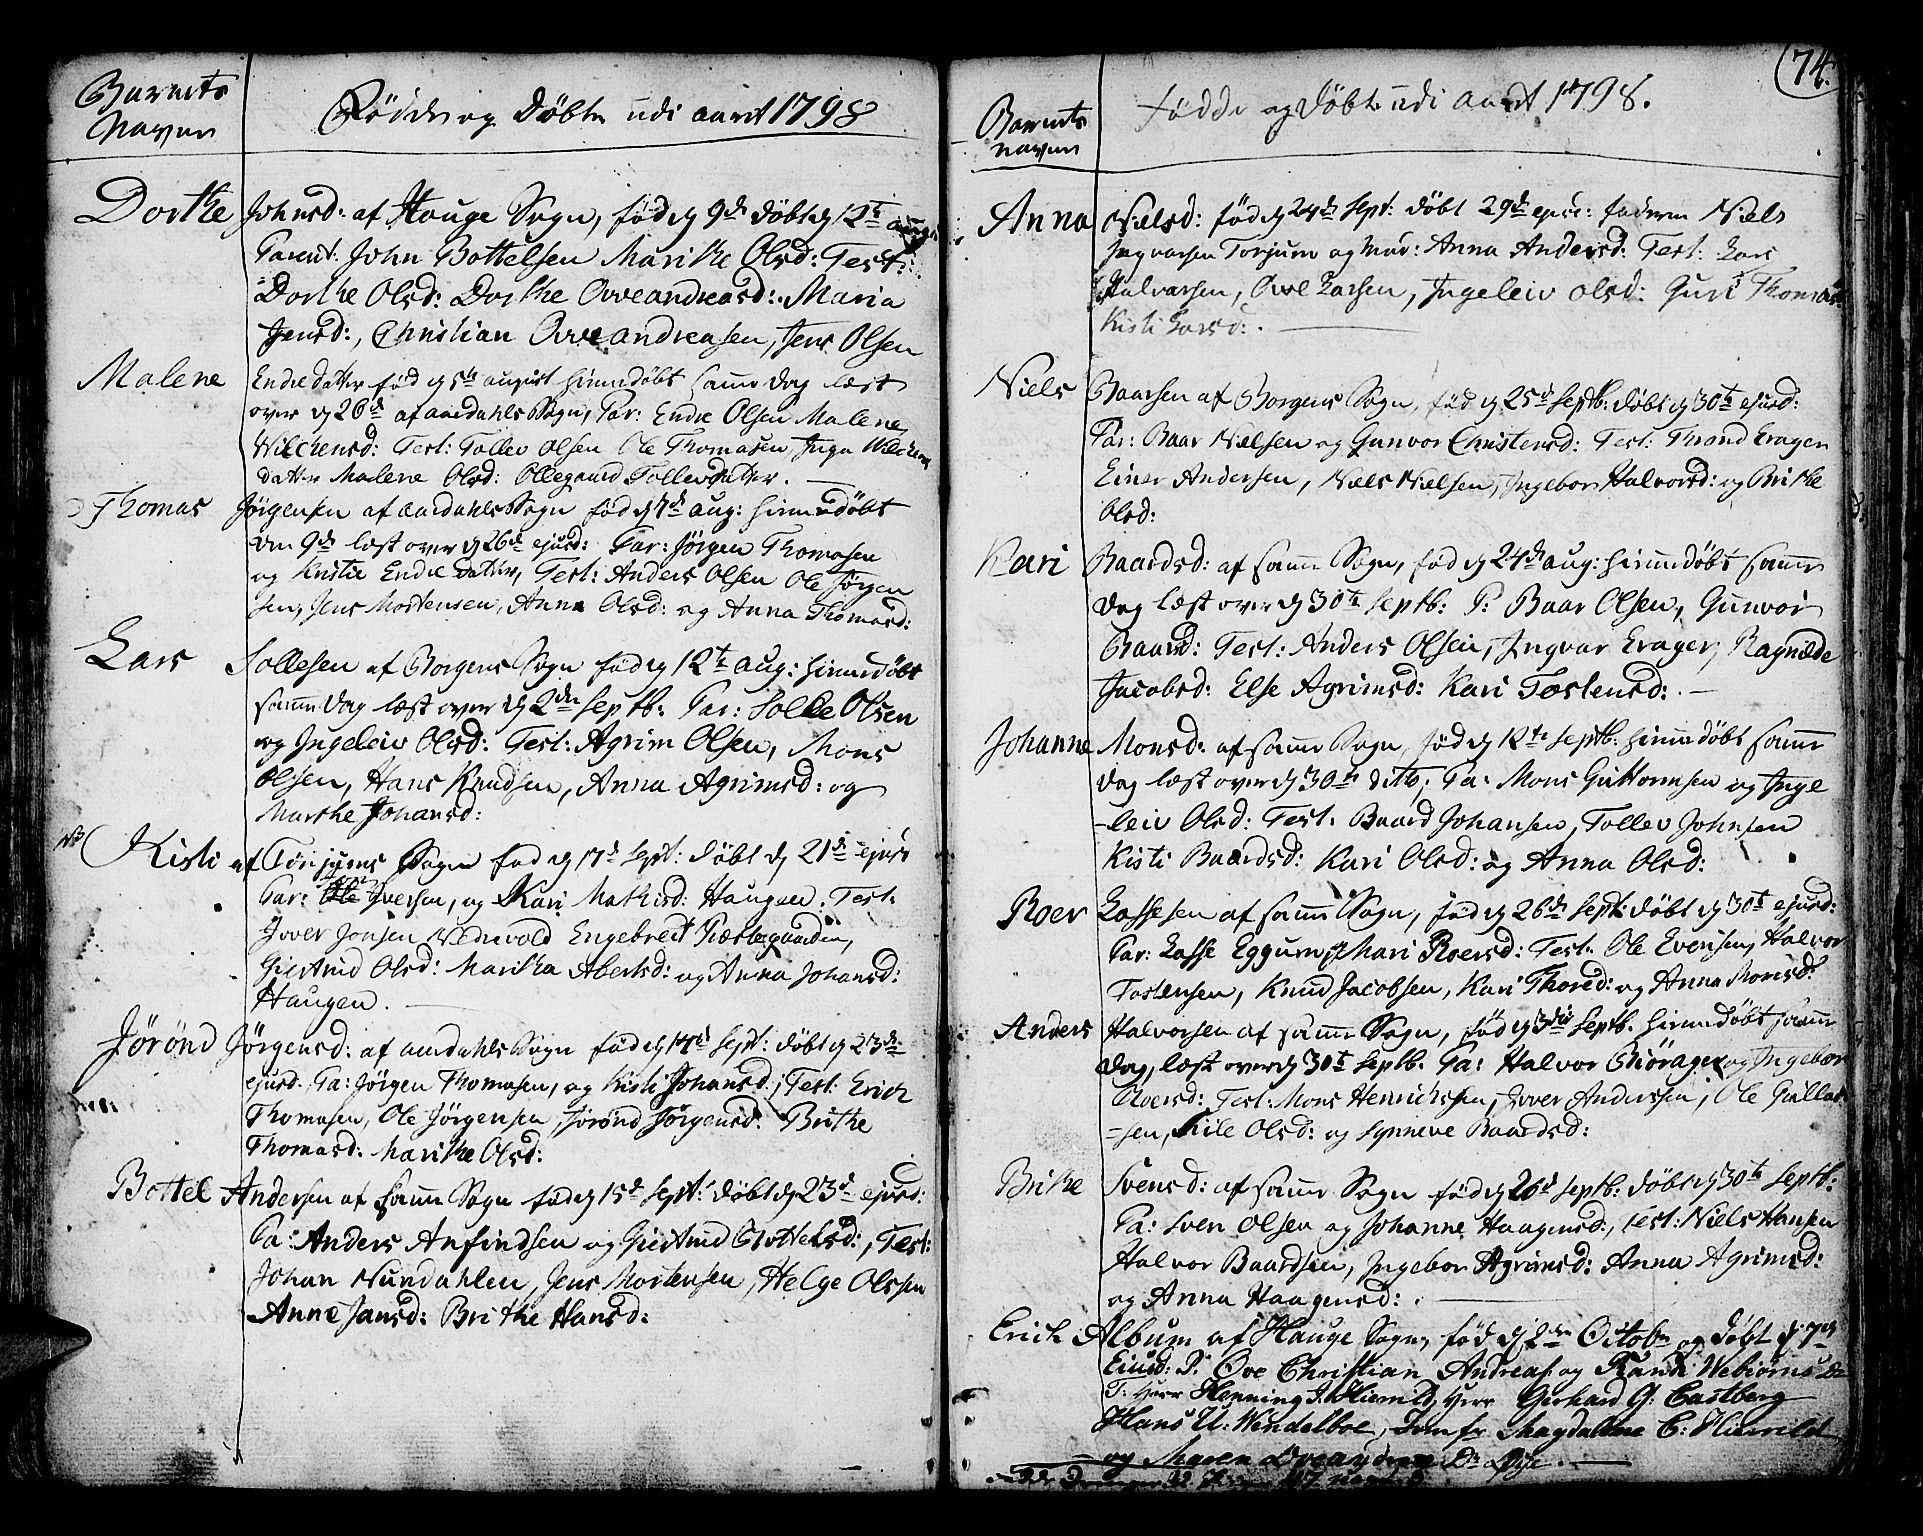 Barnets
Navn
Födde og Döbte udi aaret 1798
Dorthe Johnsd: af Houge Sogn, föd d 9de döbt d 12te aug:
Parent. John Bottelsen Marithe Olsd: Test:
Dorthe Olsd: Dorthe Oveandreasd: Maria
Jensd:, Christian Oveandreasen, Jens Olsen
Malene Endredatter föd d 5te august hiemedöbt samme dag læst
over d 26de af aardahls Sogn, Par: Endre Olsen Malene
Wilchensd: Test: Tollev Olsen Ole Thomasen, Inga Wilchens
datter Malene Olsd: Ollegaard Tollevdatter.
Thomas Jörgensen af aardahls Sogn föd d 7de aug: hiemedöbt
den 9de læst over d 26de ejusd: Par: Jörgen Thomasen
og Kristie Endredatter, Test: Anders Olsen Ole Jörgen
sen, Jens Mortensen, Anna Olsd: og Anna Thomasd:
Lars Sollesen af Borgens Sogn föd d 12te aug: hiemedöbt
samme dag læst over d 2den septb: Par: Solle Olsen
og Ingeleiv Olsd: Test: Agrim Olsen, Mons
Olsen, Hans Knudsen, Anna Agrimsd: og
Marthe Johansd:
Kisti af Tönjums Sogn föd d 17d sept: döbt d 21de ejusd
Par: Iversen, og Kari Mathisd: Haugen. Test:
Iver Jonsen Nedrevold Engebrect Præstegaarden,
Giertrud Olsd: Maritha Abertsd: og Anna Johansd:
Haugen.
Jörönd Jörgensd: af aardahls Sogn föd d 14de sept: döbt d 23de
ejusd. Pa: Jörgen Thomasen, og Kisti Johansd:, Test: Erich
Thomasen, Ole Jörgensen, Jörönd Jörgensd: Brithe
Thomasd: Marithe Olsd:
Bottel Andersen af samme Sogn föd d 15d sept: döbt d 23d ejusd:
Pa: Anders Anfindsen og Giertrud Bottelsd:, Test:
Johan Nundahlen, Jens Mortensen, Helge Olssen
Anne Jansd: Brithe Hansd:
74.
Barnets
navn
Födde og Döbte udi aaret 1798.
Anna Nielsd: föd d 24de sept: döbt 29de ejus: faderen Niels
Ingvarsen Tonjum og Mod: Anna Andersd: Test: Lars
Halvarsen, Ove Larsen, Ingeleiv Olsd: Guri Thomas
Kisti Larsd:.
Niels Baarsen af Borgens Sogn, föd d 25de septb: döbt d 30te ejusd:
Par: Baar Nielsen og Gunvor Christensd: Test: Trond Erager
Einer Andersen, Niels Nielsen, Ingebor Halvorsd: og Brithe
Olsd:
Kari Baardsd: af samme Sogn, föd d 24de aug: hiemedöbt samme
dag læst over d 30te septb: P: Baar Olsen, Gunvor
Baarsd: Test: Anders Olsen, Ingvar Erager, Ragnilde
Jacobsd: Else Agrimsd: Kari Tostensd:.
Johanne Monsd: af samme Sogn, föd d 12te septb: hiemedöbt samme
dag læst over d 30te dito; Pa: Mons Guttormsen og Inge
leiv Olsd: Test: Baard Johansen, Tollev Johnsen
Kisti Baardsd: Kari Olsd: og Anna Olsd:
Roer Lassesen af samme Sogn, föd d 26de sept: döbt d 30te ejusd:
Par: Lasse Eggum, Mari Roersd: Test: Ole Evensen, Halvor
Tostensen, Knud Jacobsen, Kari Thored: og Anna Monsd:
Anders Halvorsen af samme Sogn, föd d 3die septb. hiemedöbt samme
dag, læst over d 30te septb. Pa: Halvor Chörager og Ingebor
Olversd: Test: Mons Henrichsen, Iver Anderssen, Ole Gullac
sen, Kile Olsd: og Synneve Baardsd:
Brithe Svensd: af samme Sogn föd d 26de septb: döbt d 30te septb:
Pa: Sven Olsen og Johanne Haagensd:, Test: Niels Hansen
Halvor Baardsen, Ingebor Agrimsd: Anna Agrimsd:
og Anna Haagensd:.
Erich Album af Hauge Sogn, föd d 2den Octobr og döbt d 7de
Eiusd: P: Ove Christian Andreas og Randi Webiörns Dr
T: Herr Henning J. Hiermild, Herr Gerhard G: Castberg
Hans U: Windelboe, Jomfr Magdalena C: Hiermild
og Maren Oveandreas Dr Öye.